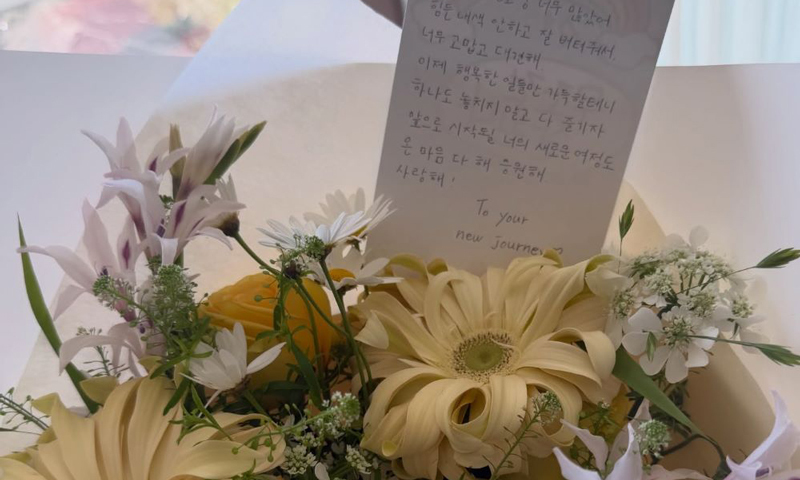 너무 많았어
힘든 내색 안하고 잘 버텨줘서,
너무 고맙고 대견해
이제 행복한 일들만 가득할테니
하나도 놓치지 말고 다 즐기자
앞으로 시작될 너의 새로운 여정도
온 마음 다 해 응원해
사랑해.
To your
new journey♡